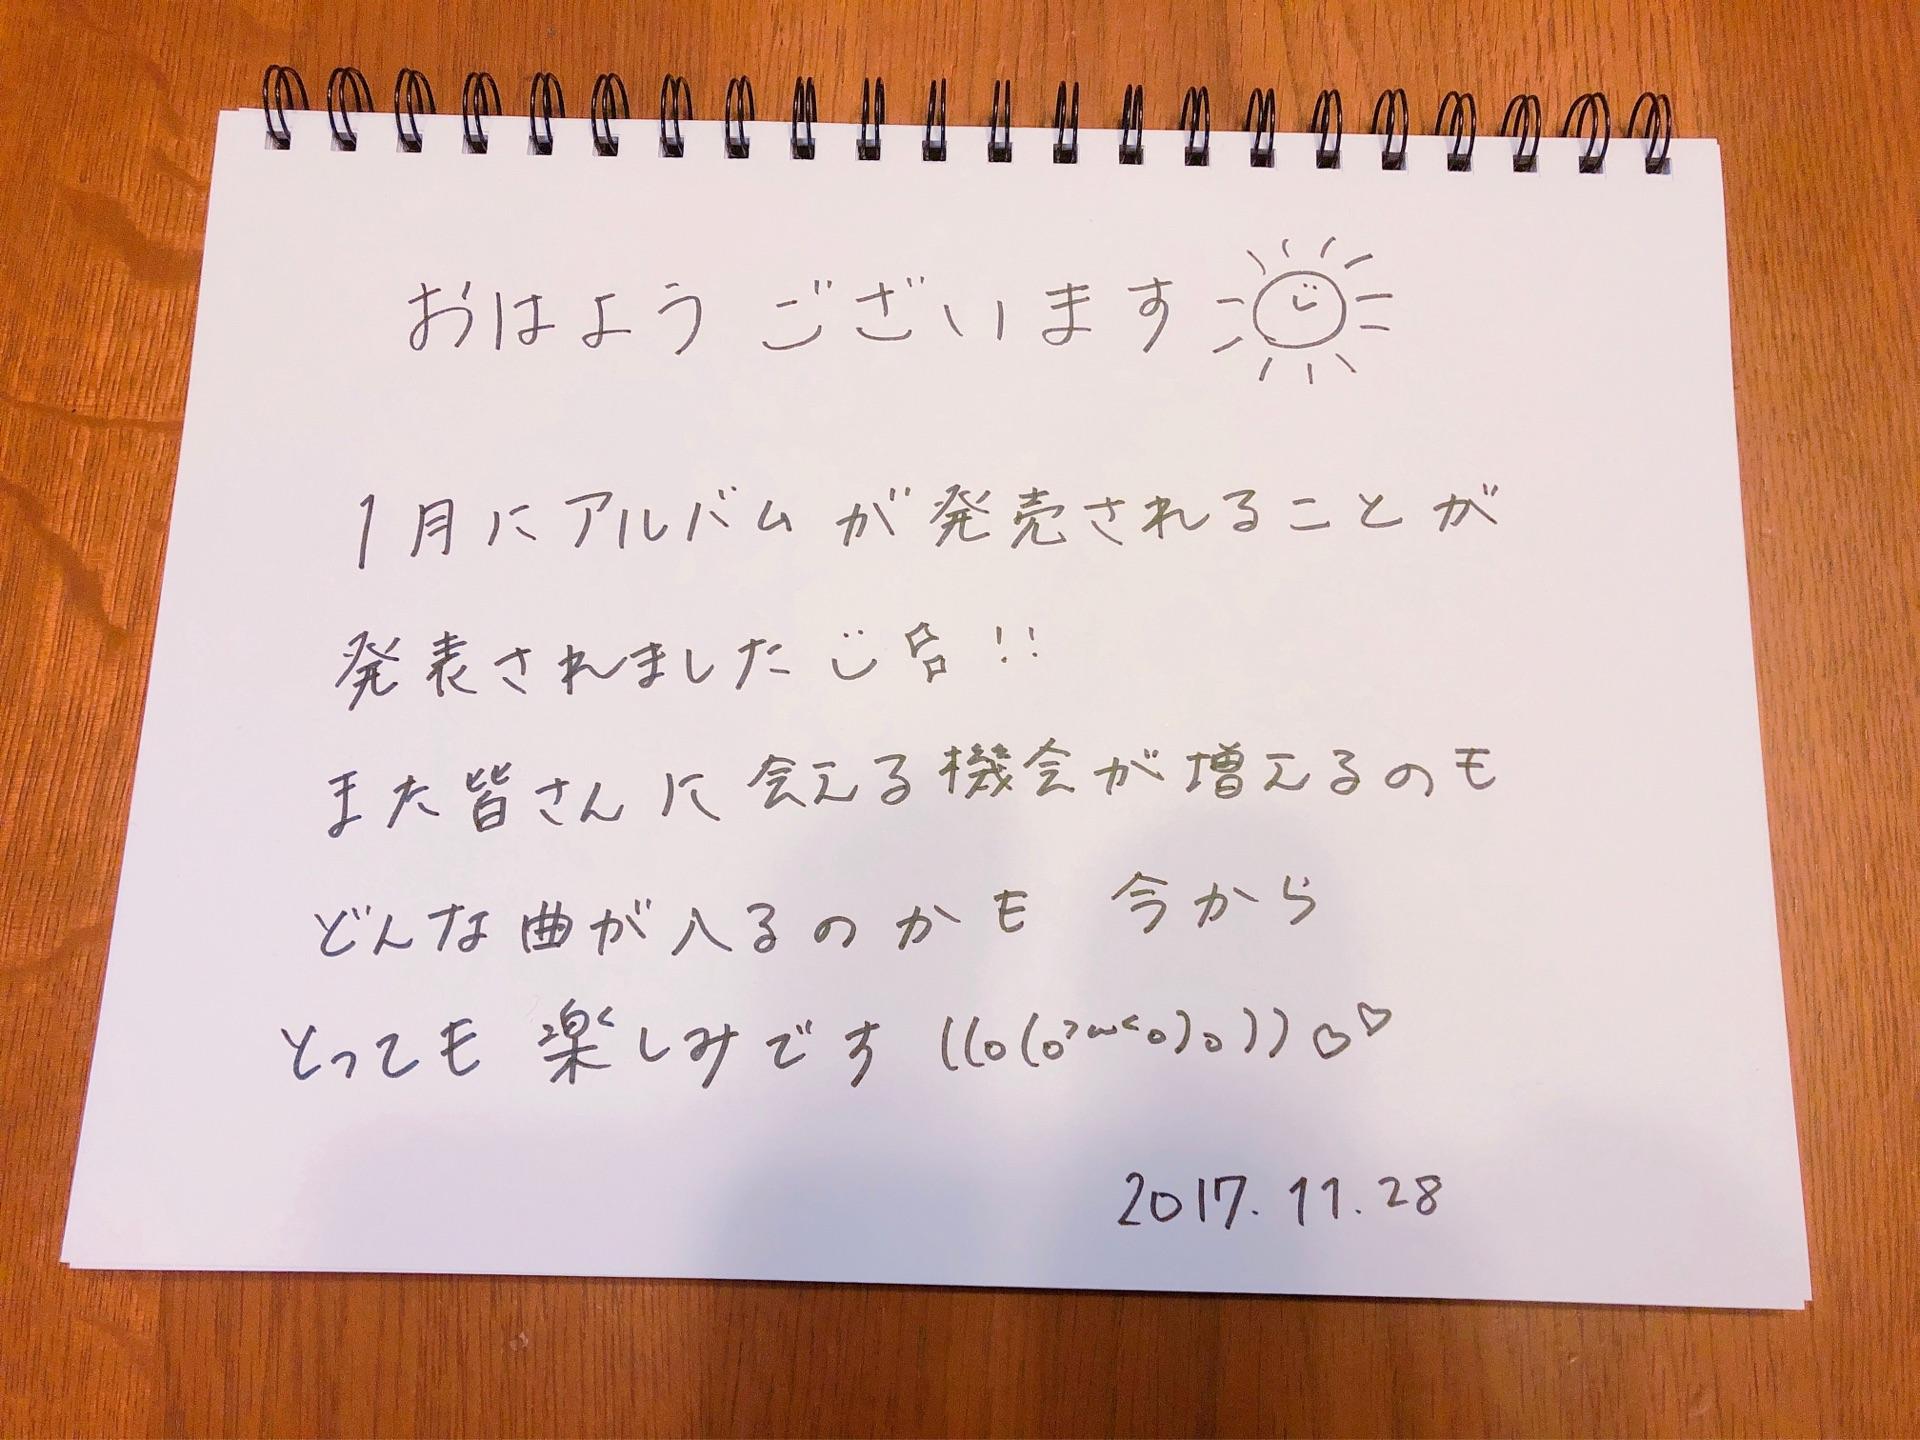 おはようございます
1月にアルバムが発売されることが
発表されました!!
また皆さんに会える機会が増えるのも
どんな曲が入るのかも 今から
とっても楽しみです ((o(o>ω<o)o))♡♡
2017.11.28